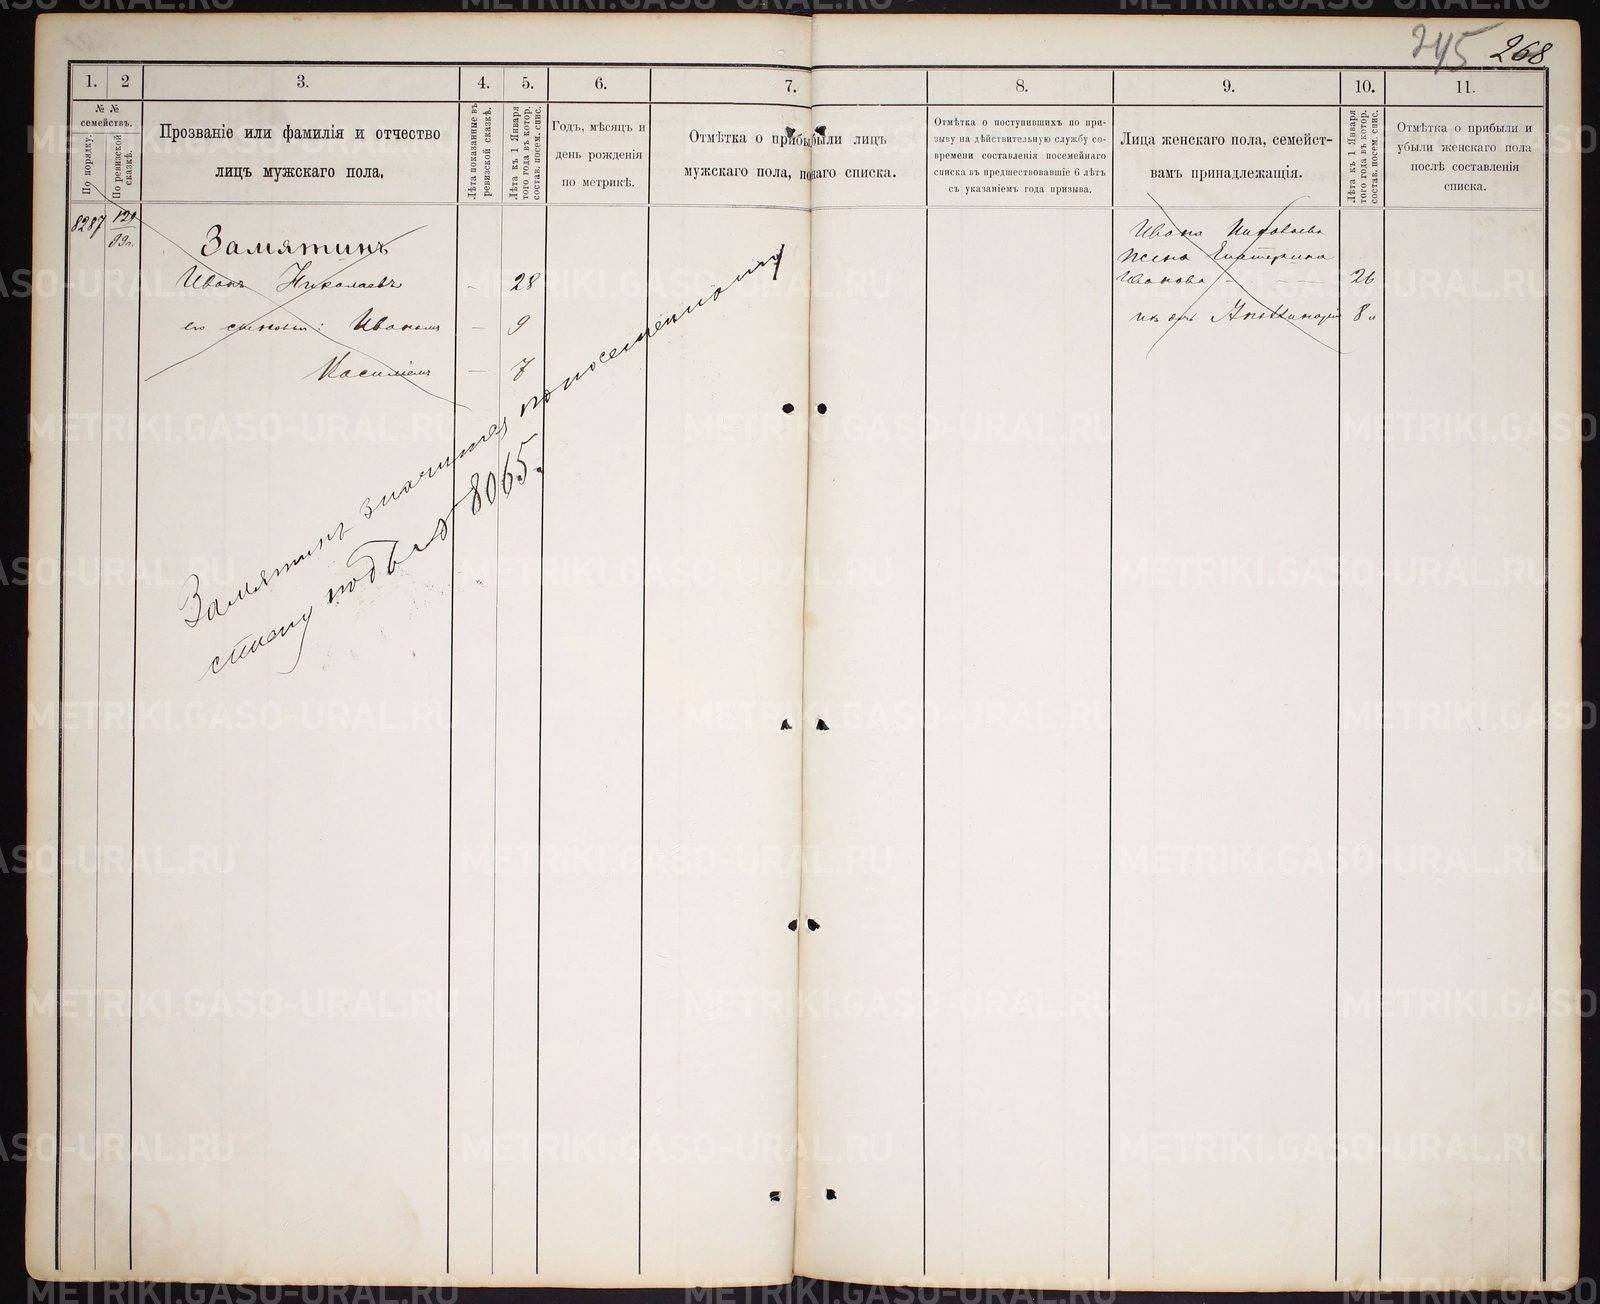 245 268
1. 2 3. 4. 5. 6. 7. 8. 9. 10. 11.
№ № семействъ.
По порядку.
По ревизской сказкѣ.
Прозваніе или фамилія и отчество
лицъ мужскаго пола.
Лѣта показанные въ
ревизской сказкѣ.
Лѣта къ 1 Января
того года въ котор.
состав. посем. спис.
Годъ, мѣсяцъ и
день рожденія
по метрикѣ.
Отмѣтка о прибы были лицъ
мужскаго пола, по наго списка.
Отмѣтка о поступившихъ по при-
зыву на дѣйствительную службу со-
времени составленія посемейнаго
списка въ предшествовавшіе 6 лѣтъ
съ указаніемъ года призыва.
Лица женскаго пола, семейст-
вамъ принадлежащія.
Лѣта къ 1 Января
того года въ котор.
состав. посем. спис.
Отмѣтка о прибыли и
убыли женскаго пола
послѣ составленія
списка.
8287
Замятинъ
Иванъ Николаевъ - 28
его сыновья: Иванъ - 9
Василій - 7
Ивана Николаева
жена Екатерина
Иванова - - - 26
ихъ дочь 8
Замятинъ значится по посемейному
списку подъ № 8065.
METRIKI.GASO-URAL.RU